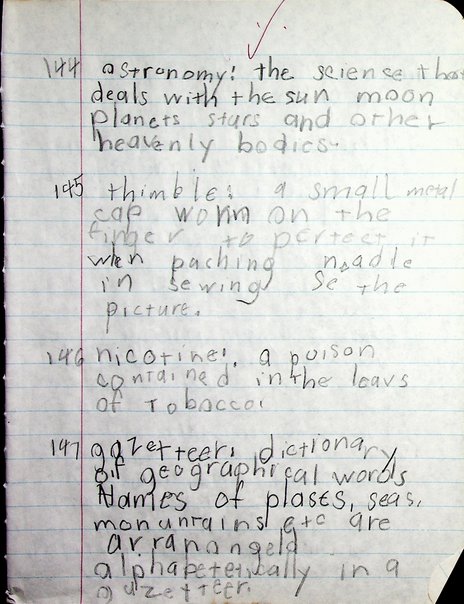 144 astronomy: the science that
deals with the sun moon
planets stars and other
heavenly bodies.
145 thimble: a small metal
cap worm on the
finger to pertect it
when paching neadle
in sewing Se the
picture.
146 nicotine: a poison
contained in the leavs
of tobacco.
147 gazetteer: dictionary
of geographical words
Names of plases, seas,
monuntains etc are
arranangeld
alphabetetically in a
gazetteer.